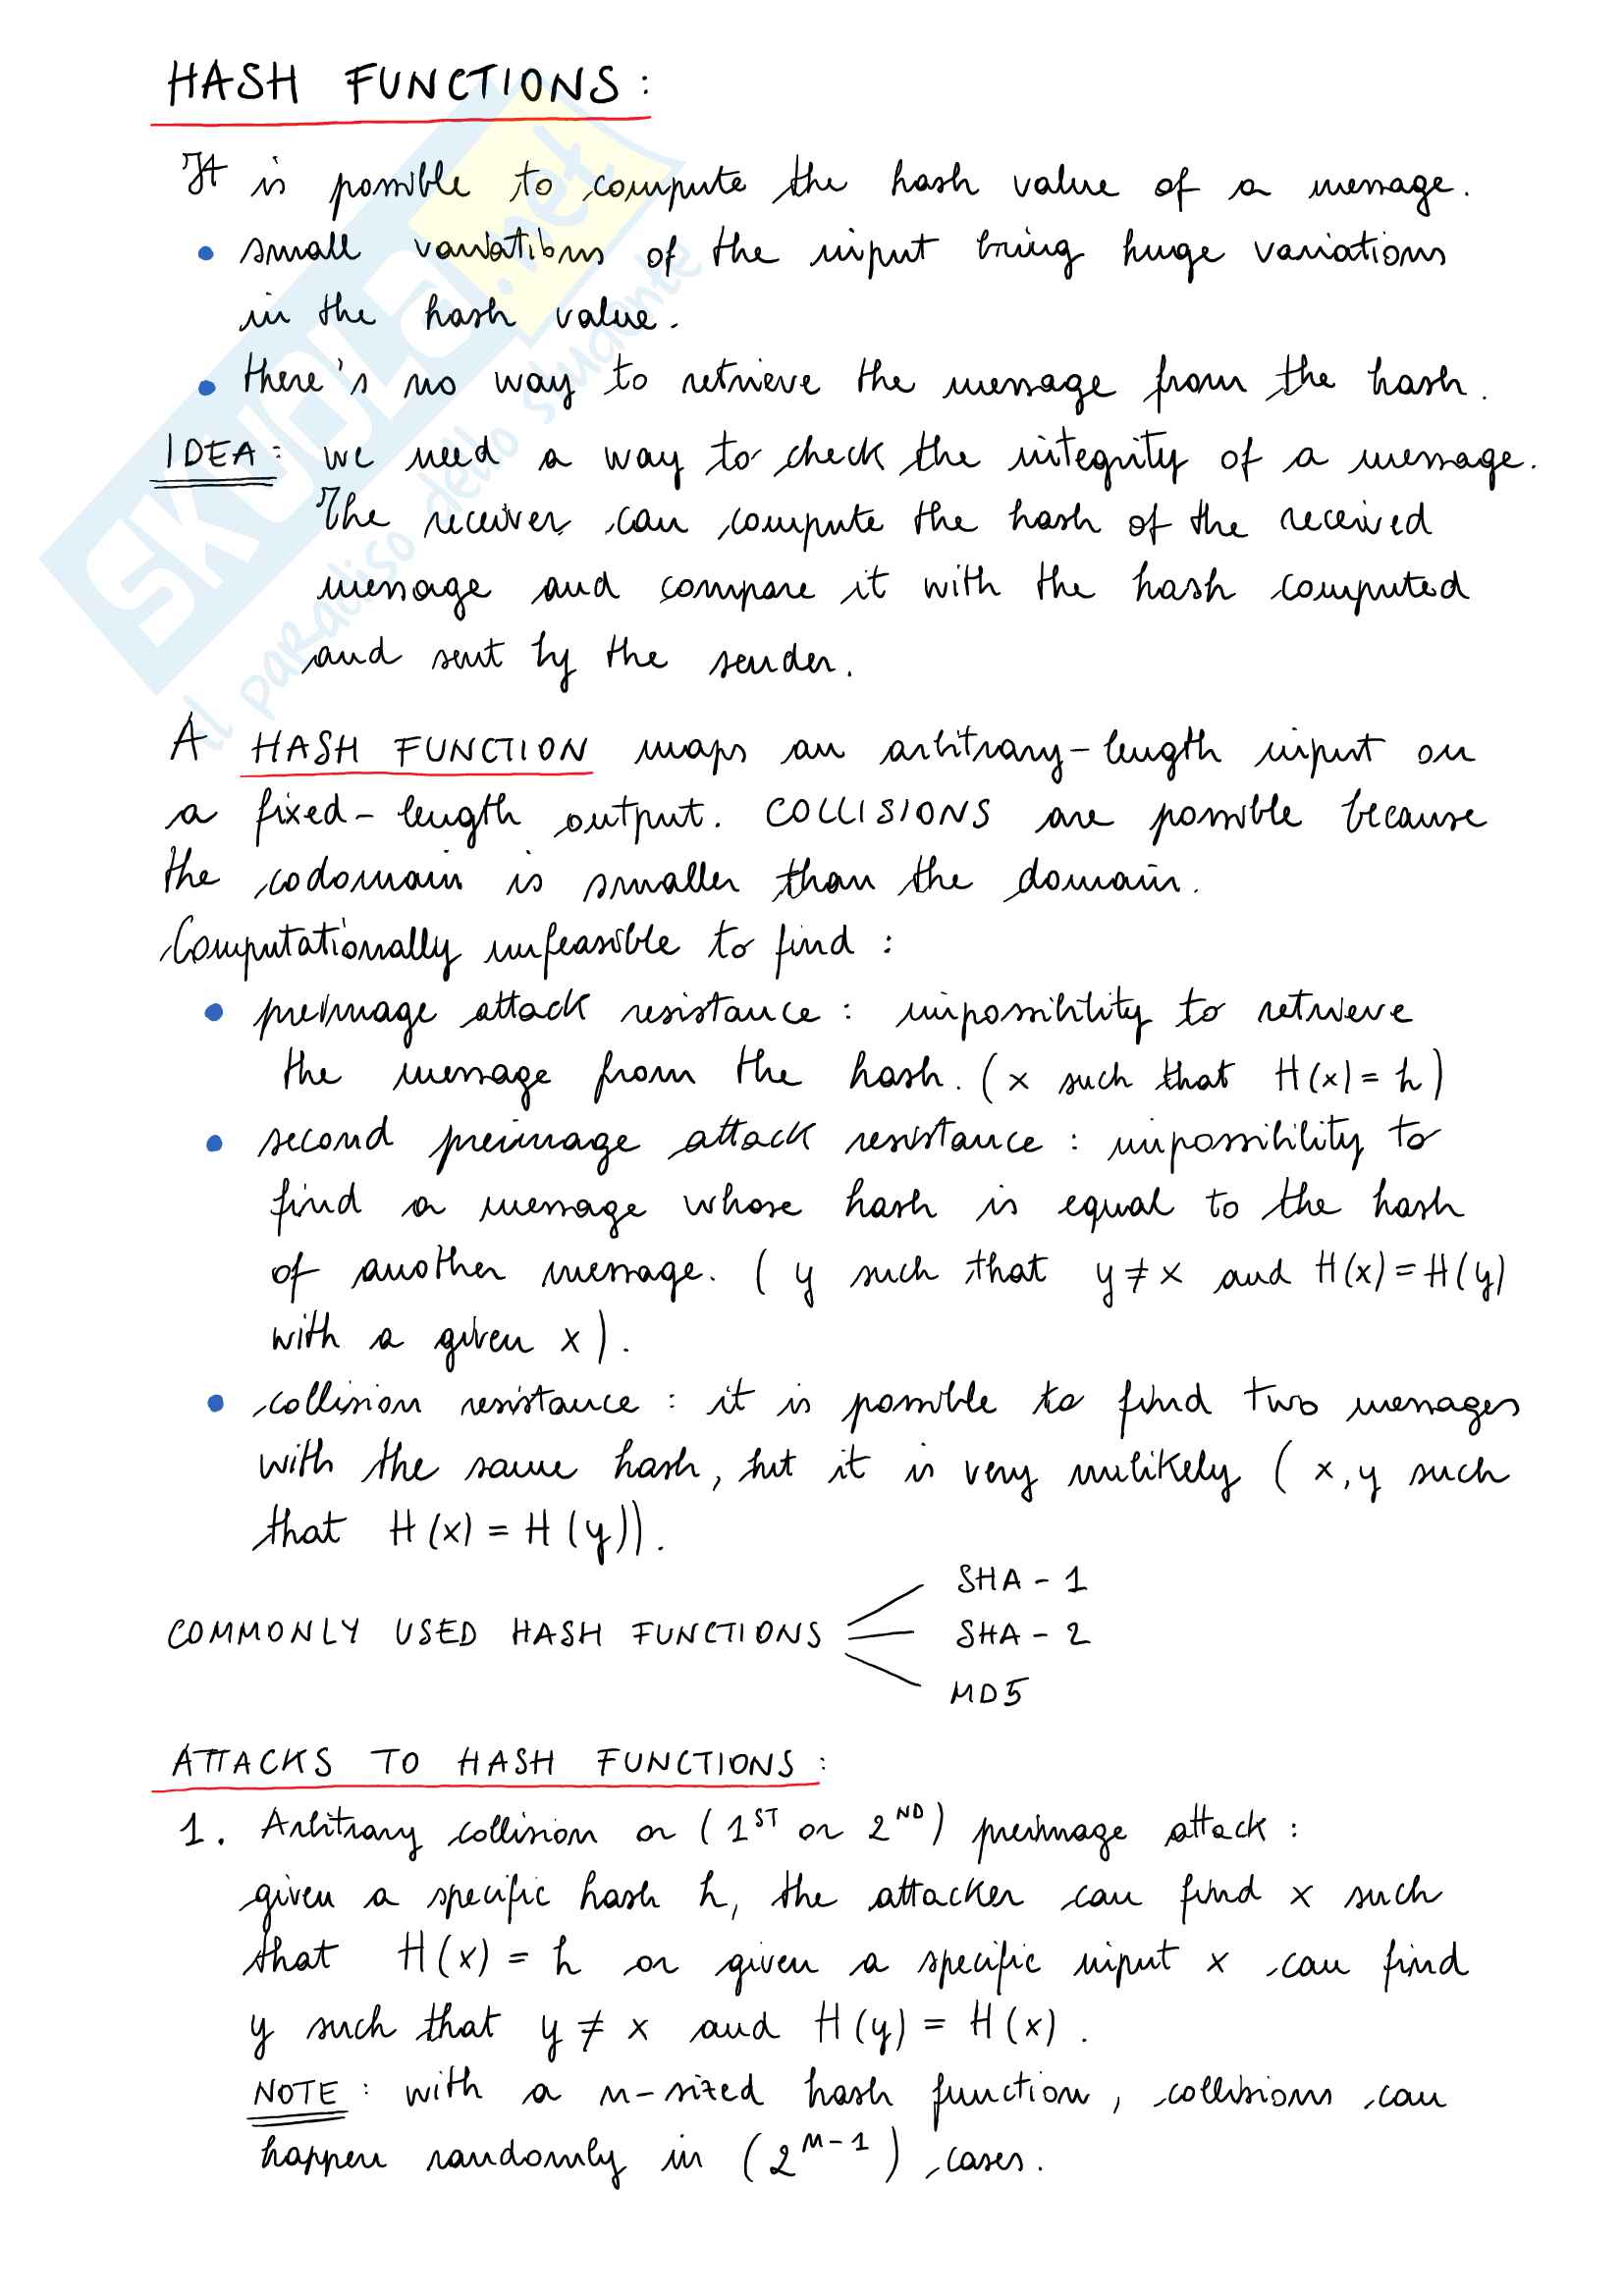 HASH FUNCTIONS :
It is possible to compute the hash value of a message.
• small variations of the input bring huge variations
in the hash value.
• there's no way to retrieve the message from the hash.
IDEA : we need a way to check the integrity of a message.
The receiver can compute the hash of the received
message and compare it with the hash computed
and sent by the sender.
A HASH FUNCTION maps an arbitrary-length input on
a fixed-length output. COLLISIONS are possible because
the codomain is smaller than the domain.
Computationally unfeasible to find :
• preimage attack resistance : impossibility to retrieve
the message from the hash. (x such that H(x) = h)
• second preimage attack resistance : impossibility to
find a message whose hash is equal to the hash
of another message. (y such that y ≠ x and H(x) = H(y)
with a given x).
• collision resistance : it is possible to find two messages
with the same hash, but it is very unlikely (x, y such
that H(x) = H(y)).
SHA - 1
COMMONLY USED HASH FUNCTIONS SHA - 2
MD5
ATTACKS TO HASH FUNCTIONS :
1. Arbitrary collision or (1ST or 2ND) preimage attack :
given a specific hash h, the attacker can find x such
that H(x) = h or given a specific input x can find
y such that y ≠ x and H(y) = H(x).
NOTE : with a n-sized hash function, collisions can
happen randomly in (2^n-1) cases.
SKUOLA.net
il paradiso dello studente